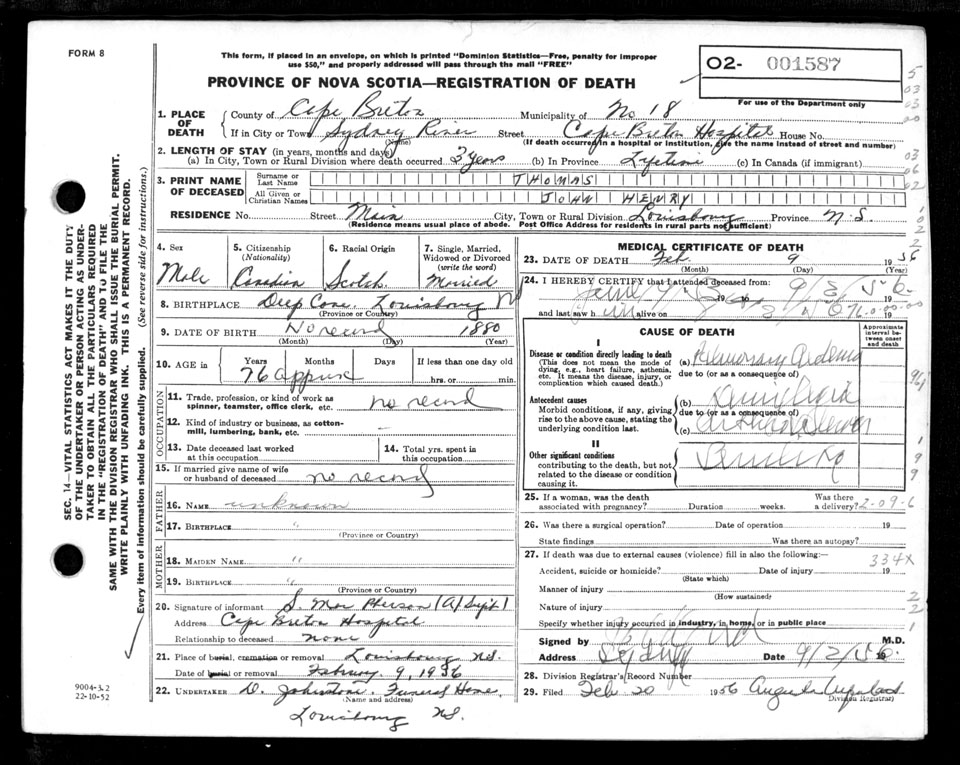 FORM 8
This form, if placed in an envelope, on which is printed "Dominion Statistics—Free, penalty for improper
use $50," and properly addressed will pass through the mail "FREE"
PROVINCE OF NOVA SCOTIA—REGISTRATION OF DEATH
O2- 001587
For use of the Department only
1. PLACE OF DEATH
County of Cape Breton Municipality of No 18
If in City or Town Sydney River Street Cape Breton Hospital House No.
(Name) (If death occurred in a hospital or institution, give the name instead of street and number)
2. LENGTH OF STAY (in years, months and days)
(a) In City, Town or Rural Division where death occurred 3 years (b) In Province Lifetime (c) In Canada (if immigrant)
3. PRINT NAME OF DECEASED
Surname or Last Name THOMAS
All Given or Christian Names JOHN HENRY
RESIDENCE No. Street Main City, Town or Rural Division Louisbourg Province N.S.
(Residence means usual place of abode. Post Office Address for residents in rural parts not sufficient)
4. Sex Male
5. Citizenship (Nationality) Canadian
6. Racial Origin Scotch
7. Single, Married, Widowed or Divorced (write the word) Married
8. BIRTHPLACE Deep Cove, Louisbourg
(Province or Country)
9. DATE OF BIRTH No record 1880
(Month) (Day) (Year)
10. AGE in Years Months Days If less than one day old
76 approx hrs. or min.
OCCUPATION
11. Trade, profession, or kind of work as
spinner, teamster, office clerk, etc. no record
12. Kind of industry or business, as cotton-
mill, lumbering, bank, etc. -
13. Date deceased last worked
at this occupation
14. Total yrs. spent in
this occupation
15. If married give name of wife
or husband of deceased no record
FATHER
16. NAME unknown
17. BIRTHPLACE "
(Province or Country)
MOTHER
18. MAIDEN NAME "
19. BIRTHPLACE "
(Province or Country)
20. Signature of informant S. Mac Pherson (A/Supt)
Address Cape Breton Hospital
Relationship to deceased none
21. Place of burial, cremation or removal Louisbourg N.S.
Date of burial or removal February 9, 1956
22. UNDERTAKER D. Johnston Funeral Home
(Name and address)
Louisbourg N.S.
MEDICAL CERTIFICATE OF DEATH
23. DATE OF DEATH Feb. 9 1956
(Month) (Day) (Year)
24. I HEREBY CERTIFY that I attended deceased from:
and last saw h alive on
CAUSE OF DEATH
Approximate interval between onset and death
I
Disease or condition directly leading to death
(This does not mean the mode of
dying, e.g., heart failure, asthenia,
etc. It means the disease, injury, or
complication which caused death.)
(a) Pulmonary Oedema
due to (or as a consequence of)
Antecedent causes
Morbid conditions, if any, giving
rise to the above cause, stating the
underlying condition last.
(b)
due to (or as a consequence of)
(c)
II
Other significant conditions
contributing to the death, but not
related to the disease or condition
causing it.
25. If a woman, was the death
associated with pregnancy? Duration weeks. Was there a delivery? 2-09-6
26. Was there a surgical operation? Date of operation 19
State findings Was there an autopsy?
27. If death was due to external causes (violence) fill in also the following:— 334X
Accident, suicide or homicide? Date of injury 19
(State which)
Manner of injury
(How sustained)
Nature of injury
Specify whether injury occurred in industry, in home, or in public place
Signed by M.D.
Address Sydney Date 9/2/56
28. Division Registrar's Record Number
29. Filed Feb 20 1956
Division Registrar)
SEC. 14—VITAL STATISTICS ACT MAKES IT THE DUTY
OF THE UNDERTAKER OR PERSON ACTING AS UNDER-
TAKER TO OBTAIN ALL THE PARTICULARS REQUIRED
IN THE "REGISTRATION OF DEATH" AND TO FILE THE
SAME WITH THE DIVISION REGISTRAR WHO SHALL ISSUE THE BURIAL PERMIT.
WRITE PLAINLY WITH UNFADING INK. THIS IS A PERMANENT RECORD.
Every item of information should be carefully supplied. (See reverse side for instructions.)
9004-3.2
22-10-52